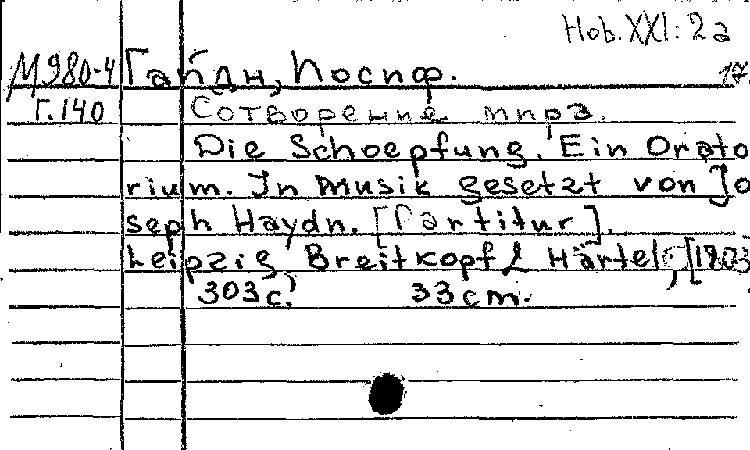 Hob. XXI: 2a
М980-4 Гайдн, Иосиф. 17
Г.140 Сотворение мира.
Die Schoepfung. Ein Orato
rium. In Musik gesetzt von Jo
seph Haydn. [Partitur].
Leipzig Breitkopf & Härtel, [1803
303 с. 33 cm.